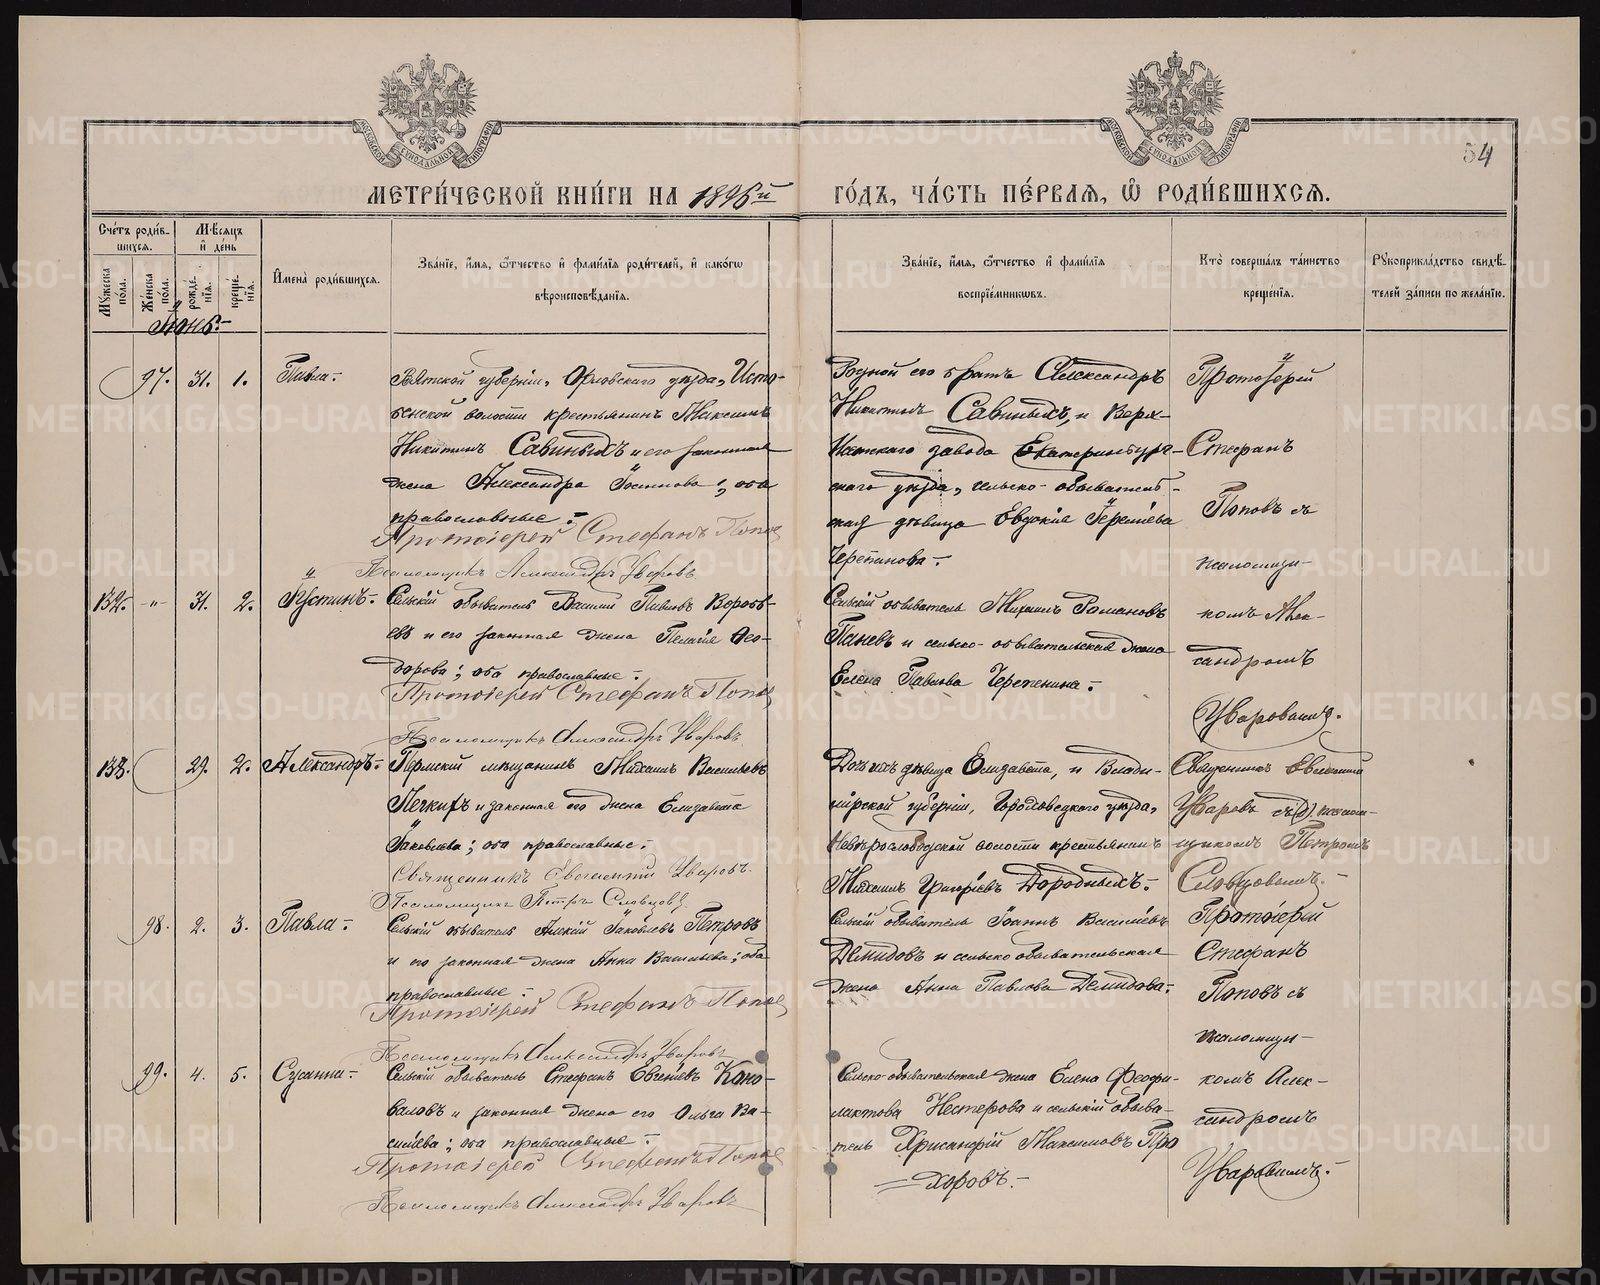 54
МЕТРИ́ЧЕСКОЙ КНИ́ГИ НА 1896й ГО́ДЪ, ЧА́СТЬ ПЕ́РВАЯ, Ѿ РОДИ́ВШИХСЯ.
Сче́тъ роди́в-
шихся.
Мѣ́сяцъ
и҆ де́нь
Мꙋ́жеска по́ла.
Же́нска по́ла.
рожде́-
нїѧ.
креще́-
нїѧ.
И҆мена̀ роди́вшихся.
Зва́нїе, и҆́мя, ѻ҆́тчество и҆ фами́лїя роди́телей, и҆ како́гѡ
вѣроисповѣ́данїя.
Зва́нїе, и҆́мя, ѻ҆́тчество и҆ фами́лїя
воспрїе́мникѡвъ.
Кто̀ соверша́лъ та́инство
креще́нїя.
Рꙋкоприкла́дство свидѣ́-
телей за́писи по жела́нїю.
Іюнь.
97. 31. 1. Павла.
Вятской губерніи, Орловскаго уѣзда, Исто-
бенской волости крестьянинъ Максимъ
Никитинъ Савиныхъ и его законная
жена Александра Іосипова; оба
православные.
Протоіерей Стефанъ Попов
Псаломщикъ Александръ Уваровъ
Родной его братъ Александръ
Никитинъ Савиныхъ, и Верх-
Исетскаго завода Екатеринбург-
скаго уѣзда, сельско-обыватель-
ская дѣвица Евдокія Іереміева
Черепанова.
Протоіерей
Стефанъ
Поповъ съ
псаломщи-
комъ Алек-
сандромъ
Уваровымъ.
132. -"- 31. 2. Іустинъ.
Сельскій обыватель Василій Павловъ Воробь-
евъ и его законная жена Пелагія Ѳео-
дорова; оба православные.
Протоіерей Стефанъ Попов
Псаломщикъ Александръ Уваровъ
Сельскій обыватель Михаилъ Романовъ
Паневъ и сельско-обывательская жена
Елена Павлова Черепенина.
133. 29. 2. Александръ.
Пермскій мѣщанинъ Михаилъ Васильевъ
Печкинъ и законная его жена Елизавета
Іаковлева; оба православные.
Священникъ Евгеній Уваровъ.
Псаломщикъ Петръ Словцовъ
Дочь ихъ дѣвица Елизавета, и Влади-
мірской губерніи, Гороховецкаго уѣзда,
волости крестьянинъ
Михаилъ Григорьевъ Дородныхъ.
Священникъ Евгеній
Уваровъ съ псалом-
щикомъ Петромъ
Словцовымъ.
98. 2. 3. Павла.
Сельскій обыватель Алексій Іаковлевъ Петровъ
и его законная жена Анна Васильева; оба
православные.
Протоіерей Стефанъ Попов
Псаломщикъ Александръ Уваровъ
Сельскій обыватель Іоаннъ Васильевъ
Демидовъ и сельско обывательская
жена Анна Павлова Демидова.
Протоіерей
Стефанъ
Поповъ съ
псаломщи-
комъ Алек-
сандромъ
Уваровымъ.
99. 4. 5. Сусанна.
Сельскій обыватель Стефанъ Евгеніевъ Коно-
валовъ и законная жена его Ольга Ва-
сильева; оба православные.
Протоіерей Стефанъ Попов
Псаломщикъ Александръ Уваровъ
Сельско-обывательская жена Елена Феофи-
лактова Нестерова и сельскій обыва-
тель Хрисанфій Максимовъ Про
хоровъ.
METRIKI.GASO-URAL.RU